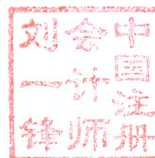 中国注册
会计师
刘一锋